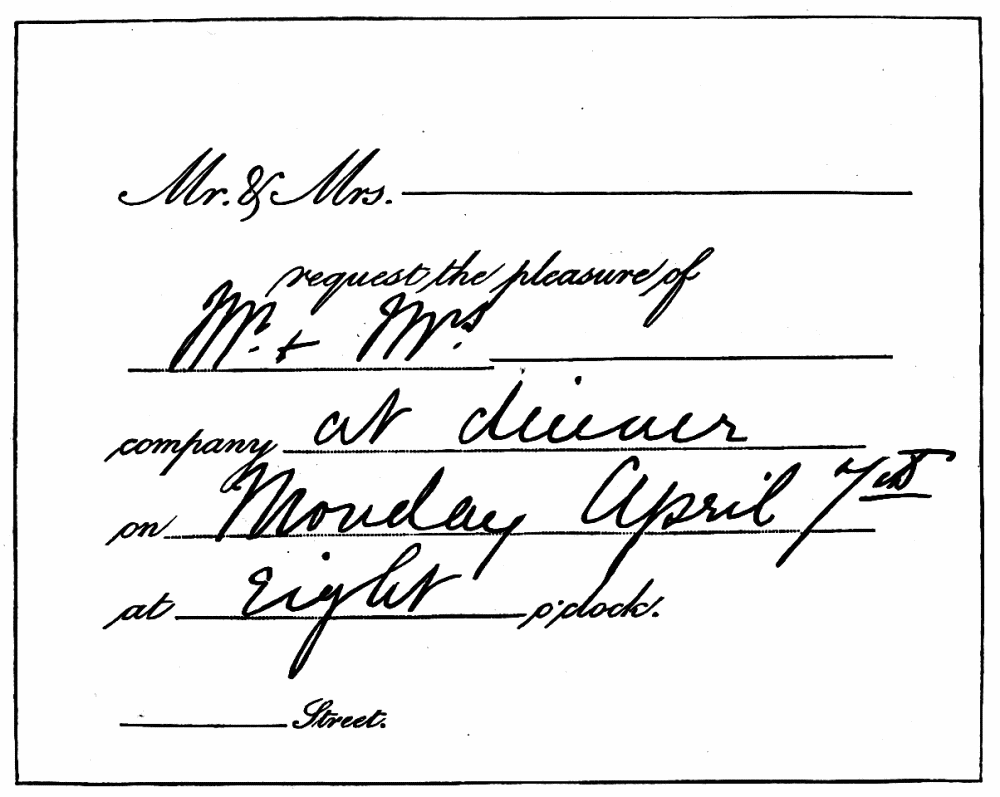 Mr. & Mrs.
request the pleasure of
Mr. + Mrs.
company at dinner
on Monday April 7th
at Eight o'clock.
Street.